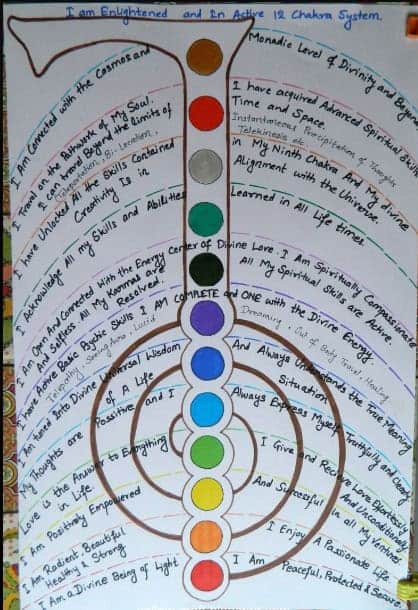 I am Enlightened and In Active 12 Chakra System.
I Am Connected with the Cosmos and
Monadic Level of Divinity and Beyond
I Travel on the Pathwork of My Soul.
I have acquired Advanced Spiritual Skills
I can travel Beyond the limits of
Time and Space.
Teleportation, Bi-Location,
Instantaneous Precipitation of Thoughts
Telekinesis etc
I have Unlocked All the Skills Contained
in My Ninth Chakra And My divine
Creativity Is in
Alignment with the Universe.
I Acknowledge All my Skills and Abilities
Learned in All Life times
I Am Open And Connected With the Energy Center of Divine Love. I Am Spiritually Compassionate
And Selfless All My Karmas are Resolved.
All My Spiritual Skills are Active.
I have Active Basic Psychic Skills I AM COMPLETE and ONE with the Divine Energy.
Telepathy, Seeing Aura, Lucid
Dreaming, Out of Body Travel, Healing
I Am tuned Into Divine Universal Wisdom
And Always Understands the True Meaning
Of A Life
Situation
My Thoughts are Positive and I
Always Express Myself Truthfully and Clearly
Love is the Answer to Everything
in Life.
I Give and Recieve Love Effortlessly
And Unconditionally
I Am Positively Empowered
And Successful in all My Ventures
I Am Radiant, Beautiful
Healthy & Strong
I Enjoy A Passionate Life
I Am a Divine Being of Light
I Am Peaceful, Protected & Secure